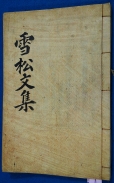 雪松文集